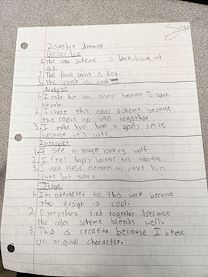 Zozobra drawing
Describe
1. The color scheme is black, brown, and
red.
2. The focal point is
3. The mood is cool
Analyze
1. I made him an animal because I love
animals
2. I chose this color scheme because
the colors go well together
3. I made him have a goofy smile
because it's cute.
Interpret
1. I see a tough looking wolf
2. I feel happy because he's adorable
3. I used these elements to make him
cute but goofy
Judge
1. I'm attracted to this work because
the design is cool.
2. Everything tied together because
the color scheme blends well.
3. This is creative because I chose
an original character.